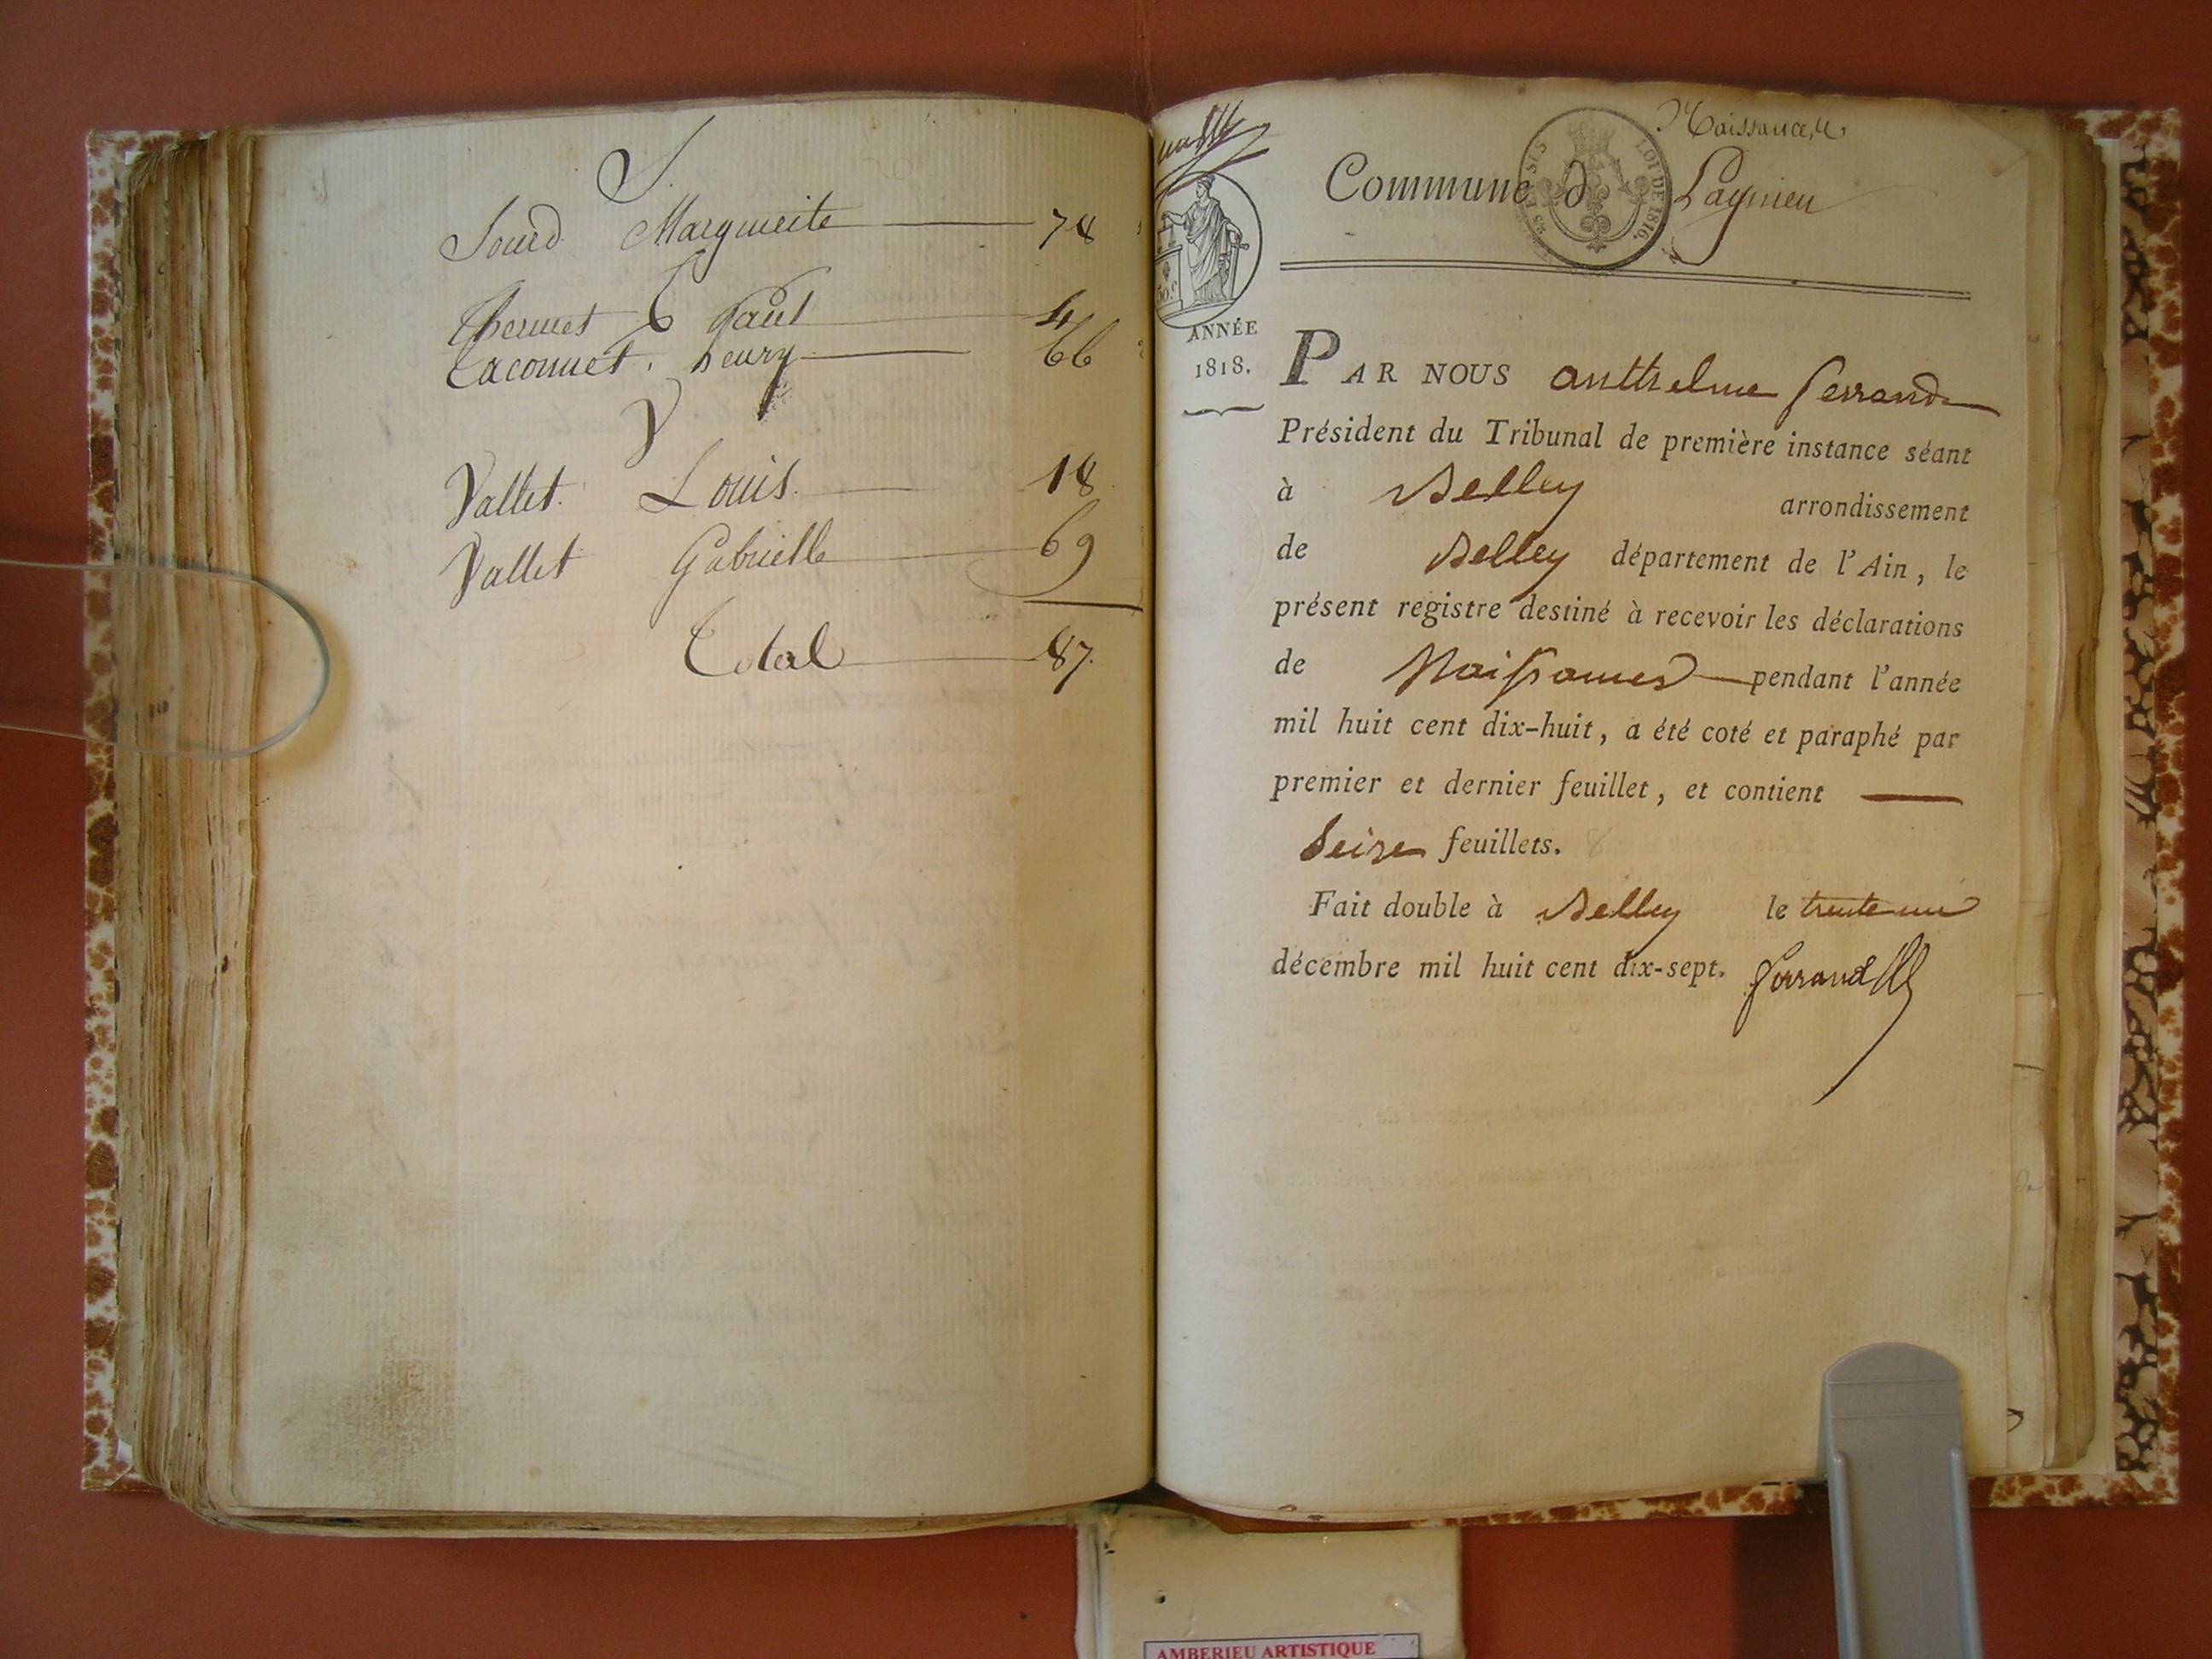 S.
Sourd Marguerite 78
T
Thermet Paul 4
Taconnet. henry 66
V
Vallet. Louis. 18
Vallet Gabrielle 69
Total 87.
Naissances
Commune d Lagnieu
LOI DE 1816.
ANNÉE
1818.
PAR NOUS Anthelme Ferrand
Président du Tribunal de première instance séant
à Belley arrondissement
de Belley département de l'Ain, le
présent registre destiné à recevoir les déclarations
de Naissances pendant l'année
mil huit cent dix-huit, a été coté et paraphé par
premier et dernier feuillet, et contient
Seize feuillets.
Fait double à Belley le trente un
décembre mil huit cent dix-sept. Ferrand
AMBERIEU ARTISTIQUE